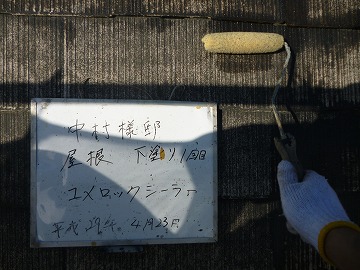 中村様邸
屋根 下塗り1回目
ユメロックシーラー
平成29年 4月23日